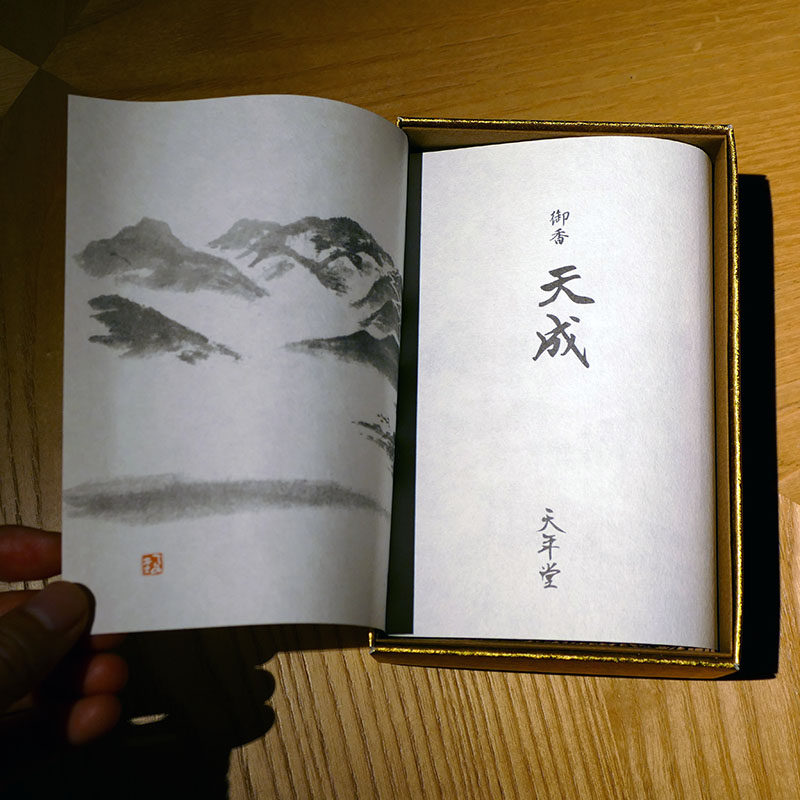 御香
天成
天年堂